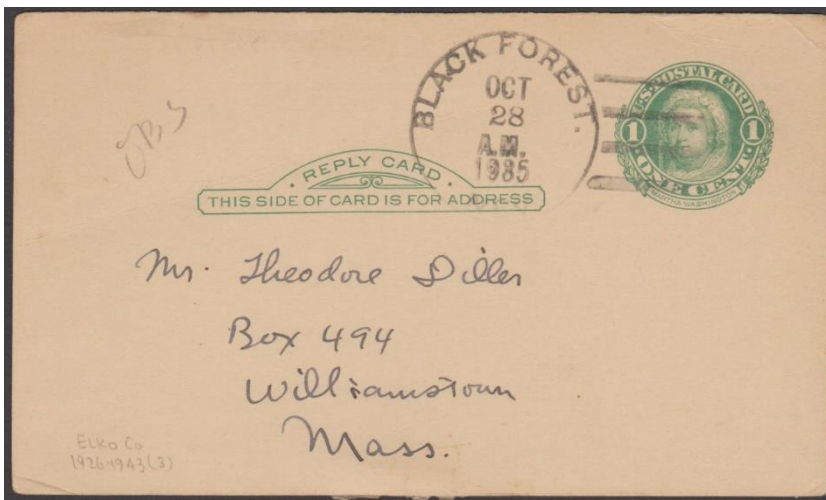 BLACK FOREST.
OCT
28
A.M.
1935
U.S. POSTAL CARD
1 1
ONE CENT
MARTHA WASHINGTON
REPLY CARD
THIS SIDE OF CARD IS FOR ADDRESS
Mr. Theodore Diller
Box 494
Williamstown
Mass.
Elko Co
1926-1943(3)